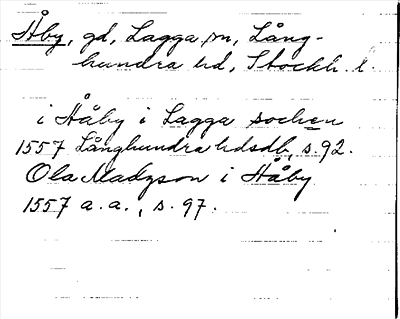 Håby, gd, Lagga sn, Lång-
hundra hd, Stockh. l.
i Håby i Lagga sochen
1557 Långhundra hdsdb, s. 92.
Ola Madzson i Håby
1557 a. a., s. 97.